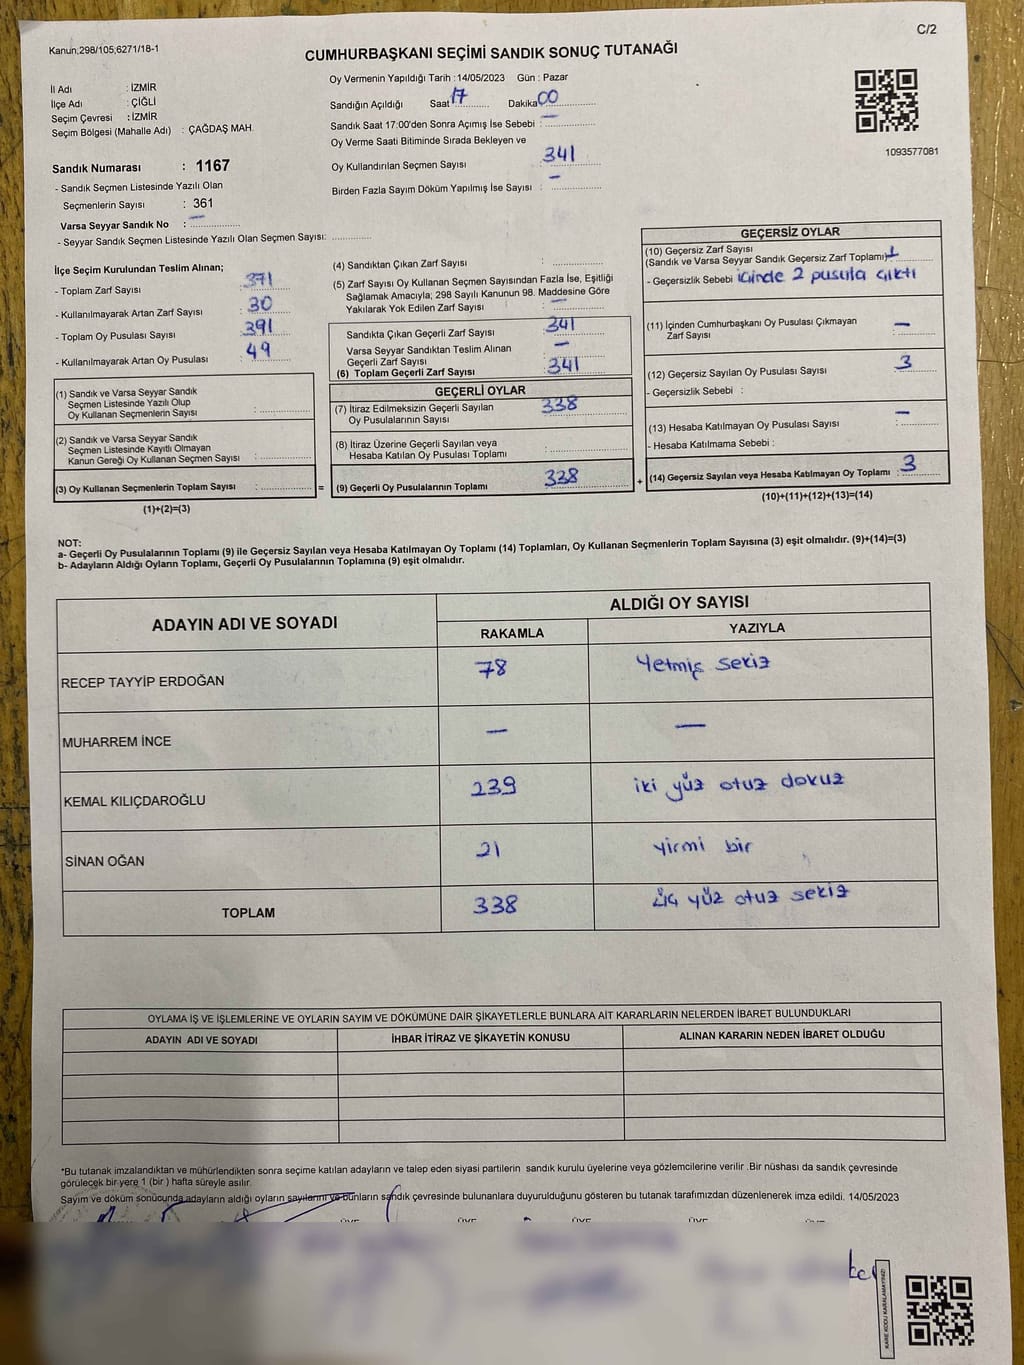 C/2
Kanun;298/105;6271/18-1
CUMHURBAŞKANI SEÇİMİ SANDIK SONUÇ TUTANAĞI
İl Adı : İZMİR
İlçe Adı : ÇİĞLİ
Seçim Çevresi : İZMİR
Seçim Bölgesi (Mahalle Adı) : ÇAĞDAŞ MAH.
Sandık Numarası : 1167
- Sandık Seçmen Listesinde Yazılı Olan
Seçmenlerin Sayısı : 361
Varsa Seyyar Sandık No : —
- Seyyar Sandık Seçmen Listesinde Yazılı Olan Seçmen Sayısı:
Oy Vermenin Yapıldığı Tarih : 14/05/2023 Gün : Pazar
Sandığın Açıldığı Saat 17 Dakika 00
Sandık Saat 17:00'den Sonra Açımış İse Sebebi : —
Oy Verme Saati Bitiminde Sırada Bekleyen ve
Oy Kullandırılan Seçmen Sayısı 341
Birden Fazla Sayım Döküm Yapılmış İse Sayısı : —
1093577081
İlçe Seçim Kurulundan Teslim Alınan;
- Toplam Zarf Sayısı : 371
- Kullanılmayarak Artan Zarf Sayısı : 30
- Toplam Oy Pusulası Sayısı : 391
- Kullanılmayarak Artan Oy Pusulası : 49
(1) Sandık ve Varsa Seyyar Sandık
Seçmen Listesinde Yazılı Olup
Oy Kullanan Seçmenlerin Sayısı :
(2) Sandık ve Varsa Seyyar Sandık
Seçmen Listesinde Kayıtlı Olmayan
Kanun Gereği Oy Kullanan Seçmen Sayısı :
(3) Oy Kullanan Seçmenlerin Toplam Sayısı :
=
(1)+(2)=(3)
(4) Sandıktan Çıkan Zarf Sayısı :
(5) Zarf Sayısı Oy Kullanan Seçmen Sayısından Fazla İse, Eşitliği
Sağlamak Amacıyla; 298 Sayılı Kanunun 98. Maddesine Göre
Yakılarak Yok Edilen Zarf Sayısı : —
Sandıkta Çıkan Geçerli Zarf Sayısı : 341
Varsa Seyyar Sandıktan Teslim Alınan
Geçerli Zarf Sayısı : —
(6) Toplam Geçerli Zarf Sayısı : 341
GEÇERLİ OYLAR
(7) İtiraz Edilmeksizin Geçerli Sayılan
Oy Pusulalarının Sayısı : 338
(8) İtiraz Üzerine Geçerli Sayılan veya
Hesaba Katılan Oy Pusulası Toplamı :
(9) Geçerli Oy Pusulalarının Toplamı : 338
+
GEÇERSİZ OYLAR
(10) Geçersiz Zarf Sayısı
(Sandık ve Varsa Seyyar Sandık Geçersiz Zarf Toplamı) 1
- Geçersizlik Sebebi : içinde 2 pusula çıktı
(11) İçinden Cumhurbaşkanı Oy Pusulası Çıkmayan
Zarf Sayısı : —
(12) Geçersiz Sayılan Oy Pusulası Sayısı : 3
- Geçersizlik Sebebi :
(13) Hesaba Katılmayan Oy Pusulası Sayısı : —
- Hesaba Katılmama Sebebi :
(14) Geçersiz Sayılan veya Hesaba Katılmayan Oy Toplamı : 3
(10)+(11)+(12)+(13)=(14)
NOT:
a- Geçerli Oy Pusulalarının Toplamı (9) ile Geçersiz Sayılan veya Hesaba Katılmayan Oy Toplamı (14) Toplamları, Oy Kullanan Seçmenlerin Toplam Sayısına (3) eşit olmalıdır. (9)+(14)=(3)
b- Adayların Aldığı Oyların Toplamı, Geçerli Oy Pusulalarının Toplamına (9) eşit olmalıdır.
ADAYIN ADI VE SOYADI ALDIĞI OY SAYISI
RAKAMLA YAZIYLA
RECEP TAYYİP ERDOĞAN 78 Yetmiş sekiz
MUHARREM İNCE — —
KEMAL KILIÇDAROĞLU 239 iki yüz otuz dokuz
SİNAN OĞAN 21 yirmi bir
TOPLAM 338 üç yüz otuz sekiz
OYLAMA İŞ VE İŞLEMLERİNE VE OYLARIN SAYIM VE DÖKÜMÜNE DAİR ŞİKAYETLERLE BUNLARA AİT KARARLARIN NELERDEN İBARET BULUNDUKLARI
ADAYIN ADI VE SOYADI İHBAR İTİRAZ VE ŞİKAYETİN KONUSU ALINAN KARARIN NEDEN İBARET OLDUĞU
*Bu tutanak imzalandıktan ve mühürlendikten sonra seçime katılan adayların ve talep eden siyasi partilerin sandık kurulu üyelerine veya gözlemcilerine verilir .Bir nüshası da sandık çevresinde
görülecek bir yere 1 (bir ) hafta süreyle asılır.
Sayım ve döküm sonucunda adayların aldığı oyların sayılarını ve bunların sandık çevresinde bulunanlara duyurulduğunu gösteren bu tutanak tarafımızdan düzenlenerek imza edildi. 14/05/2023
KARE KODU KARALAMAYINIZ!